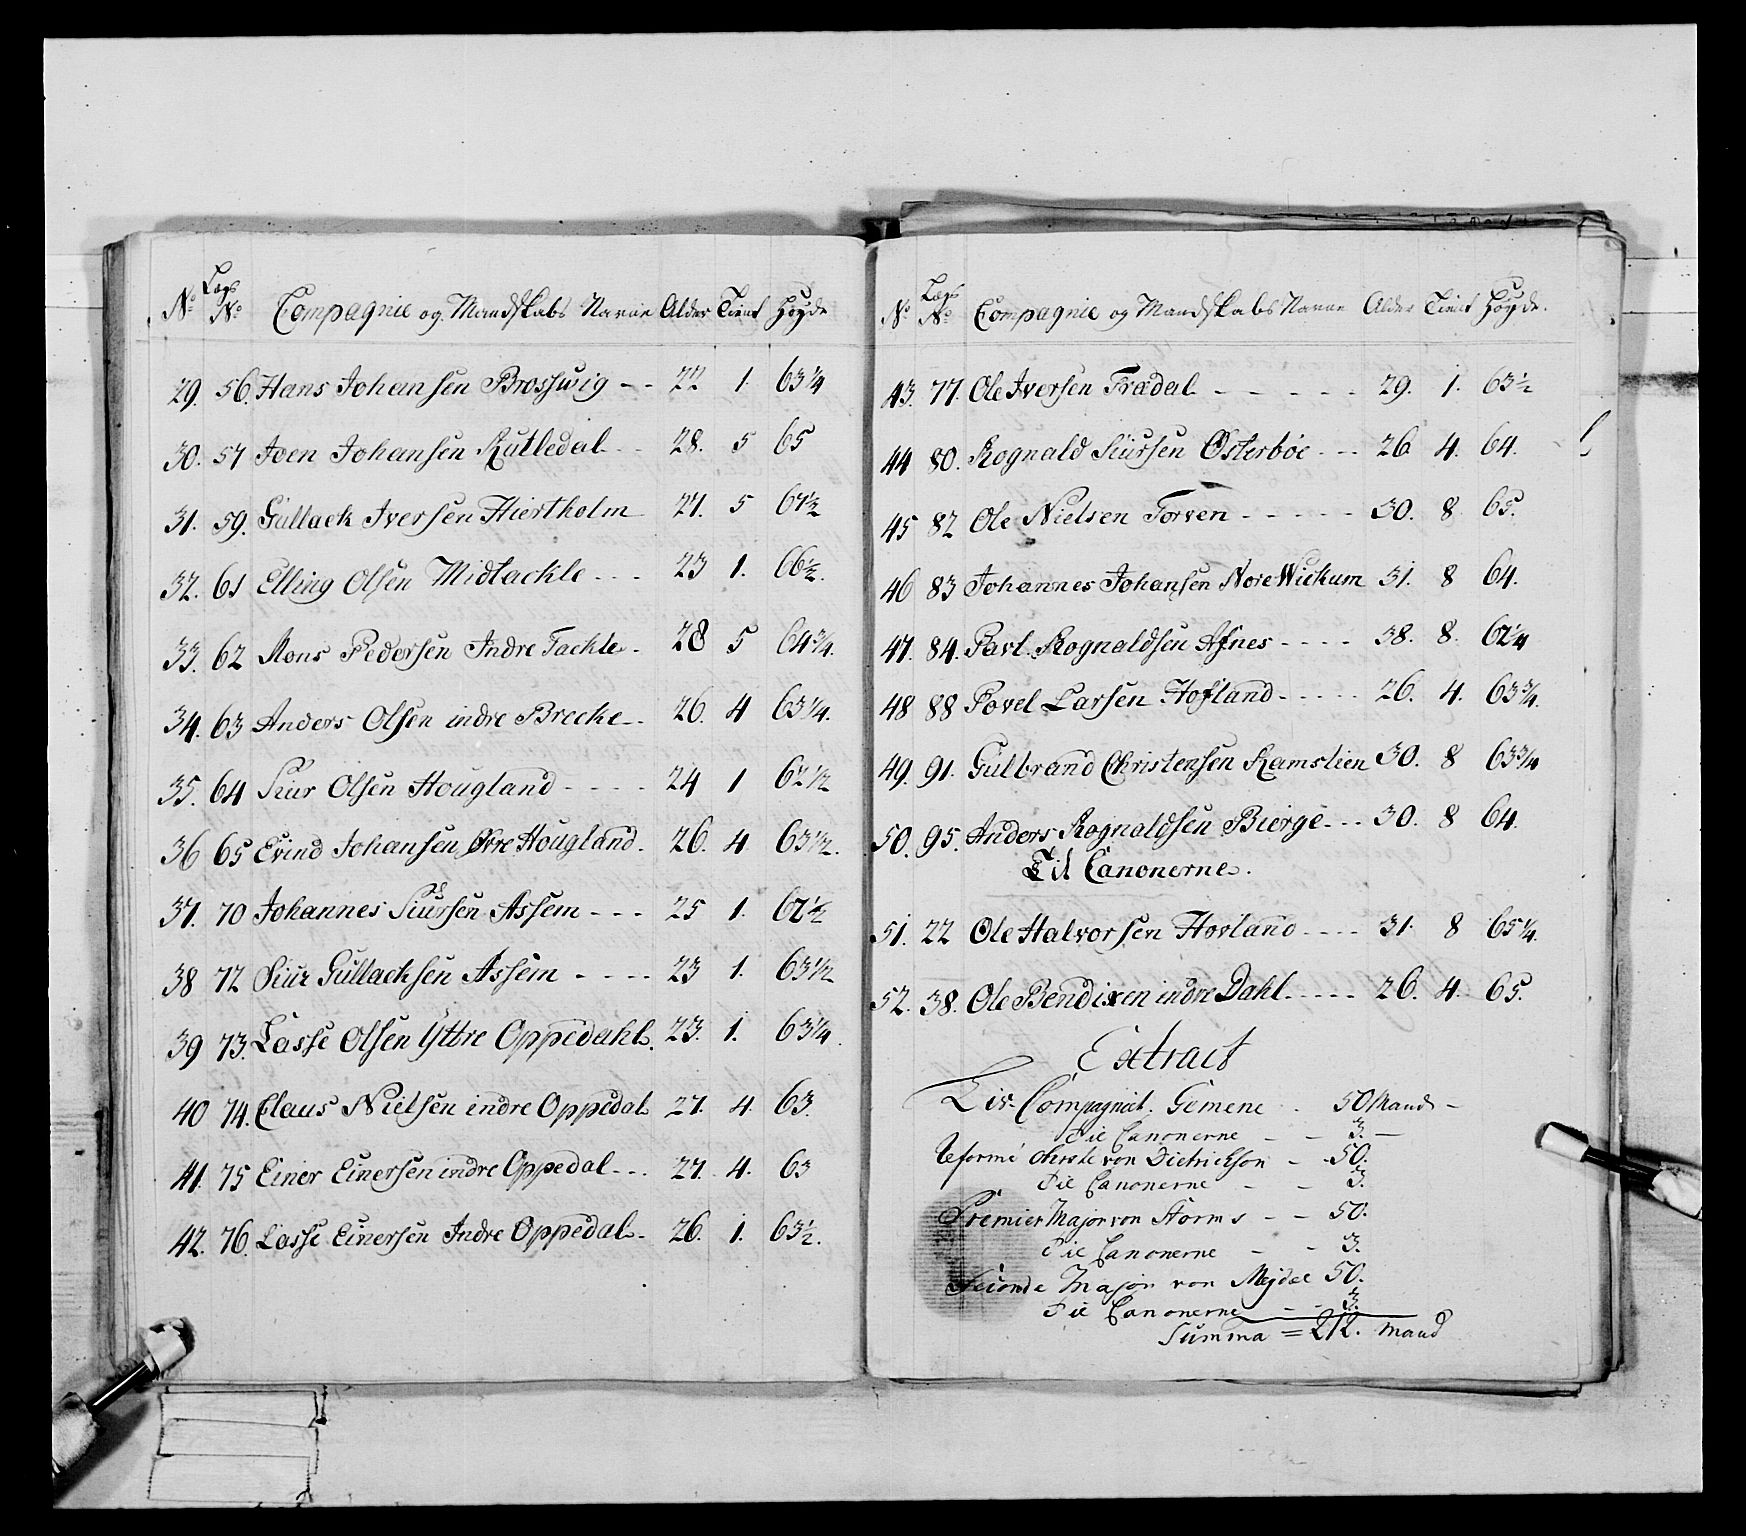 No Lægs No Compagnie og Mandskabs Navne Alder Tient Høyde
29. 56. Hans Johansen Brosswig -- 22 1. 63 1/4
30. 57 Joen Johansen Rutledal -- 28. 5 65
31. 59. Gullack Iversen Hiertholm 27. 5 67 1/2
32. 61 Elling Olsen Midtackle --- 23 1. 66 1/2.
33. 62 Mons Pedersen Indre Tackle - 28 5 64 3/4.
34. 63 Anders Olsen indre Brecke - 26. 4 63 1/4.
35. 64 Siur Olsen Hougland ---- 24 1 62 1/2
36 65 Evind Johansen Øvre Hougland. 26. 4 63 1/2.
37. 70 Johannes Siursen Assem --- 25 1. 62 1/2
38 72 Siur Gullachsen Assem ---- 23 1. 63 1/2
39 73. Lasse Olsen Yttre Oppedahl. 23. 1. 63 1/4.
40 74. Claus Nielsen indre Oppedal 27. 4. 63.
41. 75 Einer Einersen indre Oppedal --- 27. 4. 63
42. 76. Lasse Einersen Indre Oppedal - 26. 1. 63 1/2.
No Lægs No Compagnie og Mandskabs Navne Alder Tient Høyde.
43. 77. Ole Iversen Frædal ----- 29. 1. 63 1/2
44 80. Rognald Siursen Østerbøe --- 26. 4. 64.
45 82 Ole Nielsen Torven ----- 30. 8 65.
46 83 Johannes Johansen Nore Wickum 31. 8 64.
47. 84. Parl Rognaldsen Asnes ---- 38. 8. 62 1/4
48 88 Povel Larsen Hofland ----- 26. 4. 63 3/4.
49. 91. Gulbrand Christensen Ramslien 30. 8 63 3/4
50. 95. Anders Rognaldsen Bierge --- 30. 8 64.
Til Canonerne.
51. 22 Ole Halvorsen Hovland ---- 31. 8 65 1/4.
52. 38. Ole Bendixen indre Dahl ----- 26. 4. 65.
Extract
Liv-Compagniet. Gemene - 50 Mand -
Til Canonerne -- 3. -
Reformè von Dietrichson - 50.
Til Canonerne -- 3.
Premier Major von Storms -- 50.
Til Canonerne -- 3.
Seconde Major von Mejdel 50.
Til Canonerne -- 3.
Summa = 212. Mand